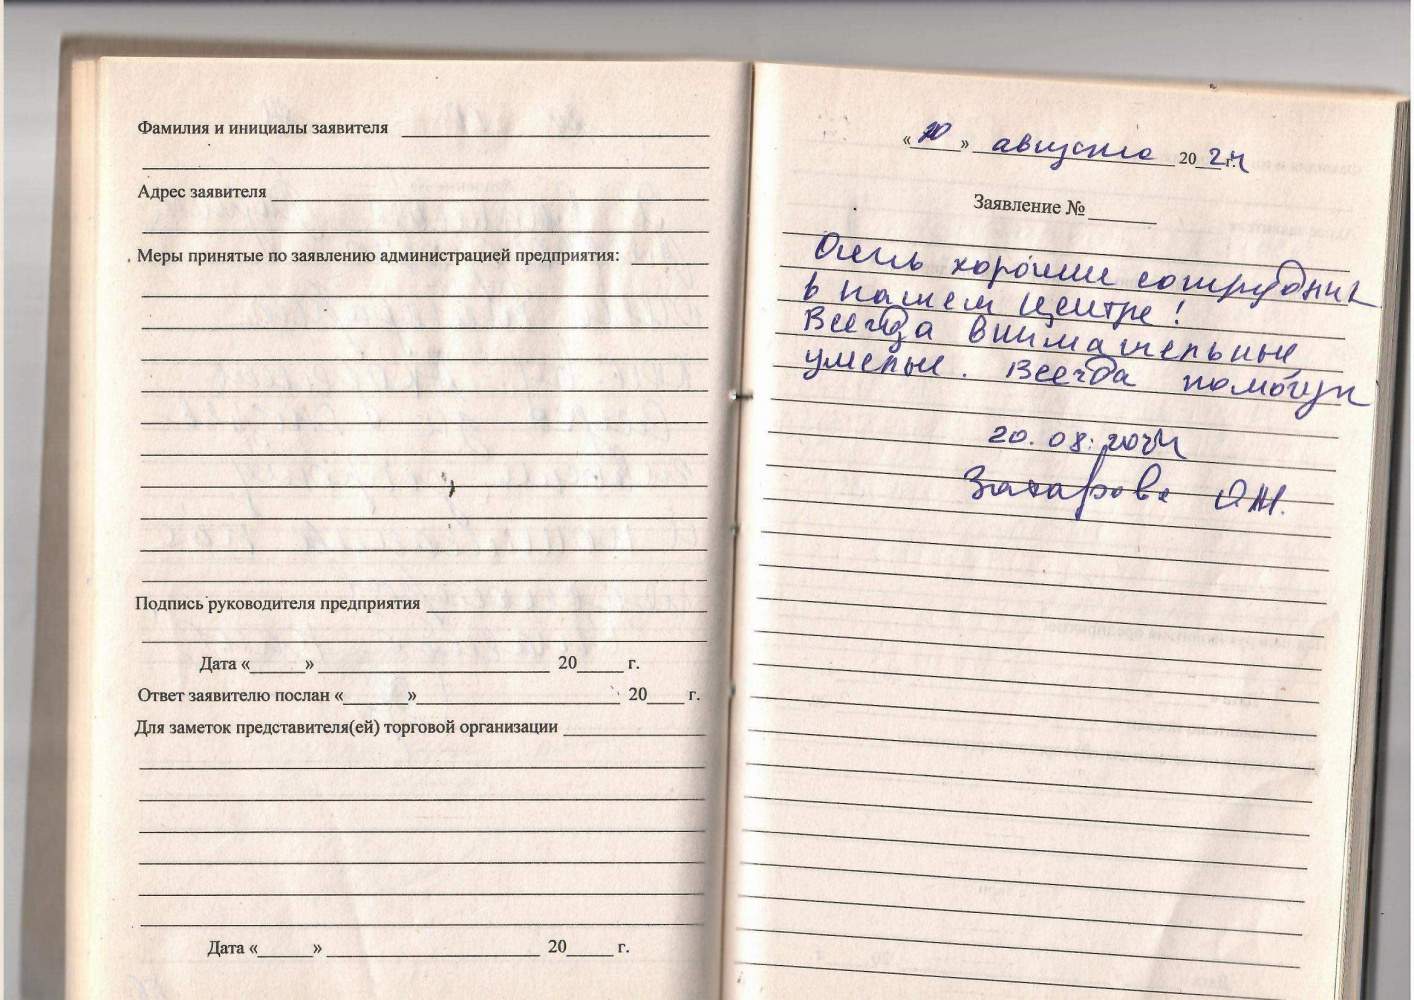 Фамилия и инициалы заявителя
Адрес заявителя
Меры принятые по заявлению администрацией предприятия:
Подпись руководителя предприятия
Дата «______» ____________ 20____ г.
Ответ заявителю послан «______» ____________ 20____ г.
Для заметок представителя(ей) торговой организации
Дата «______» ____________ 20____ г.
«20» августа 2024 г.
Заявление № ______
Очень хорошие сотрудник
в нашем центре!
Всегда внимательные,
умелые. Всегда помогут
20.08.2024
Захарова О.Н.